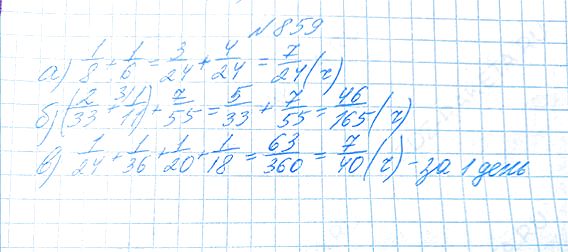 №859
а) 1/8 + 1/6 = 3/24 + 4/24 = 7/24 (г)
б) (2/33 + 3\1/11) + 7/55 = 5/33 + 7/55 = 46/165 (г)
в) 1/24 + 1/36 + 1/20 + 1/18 = 63/360 = 7/40 (г) - за 1 день